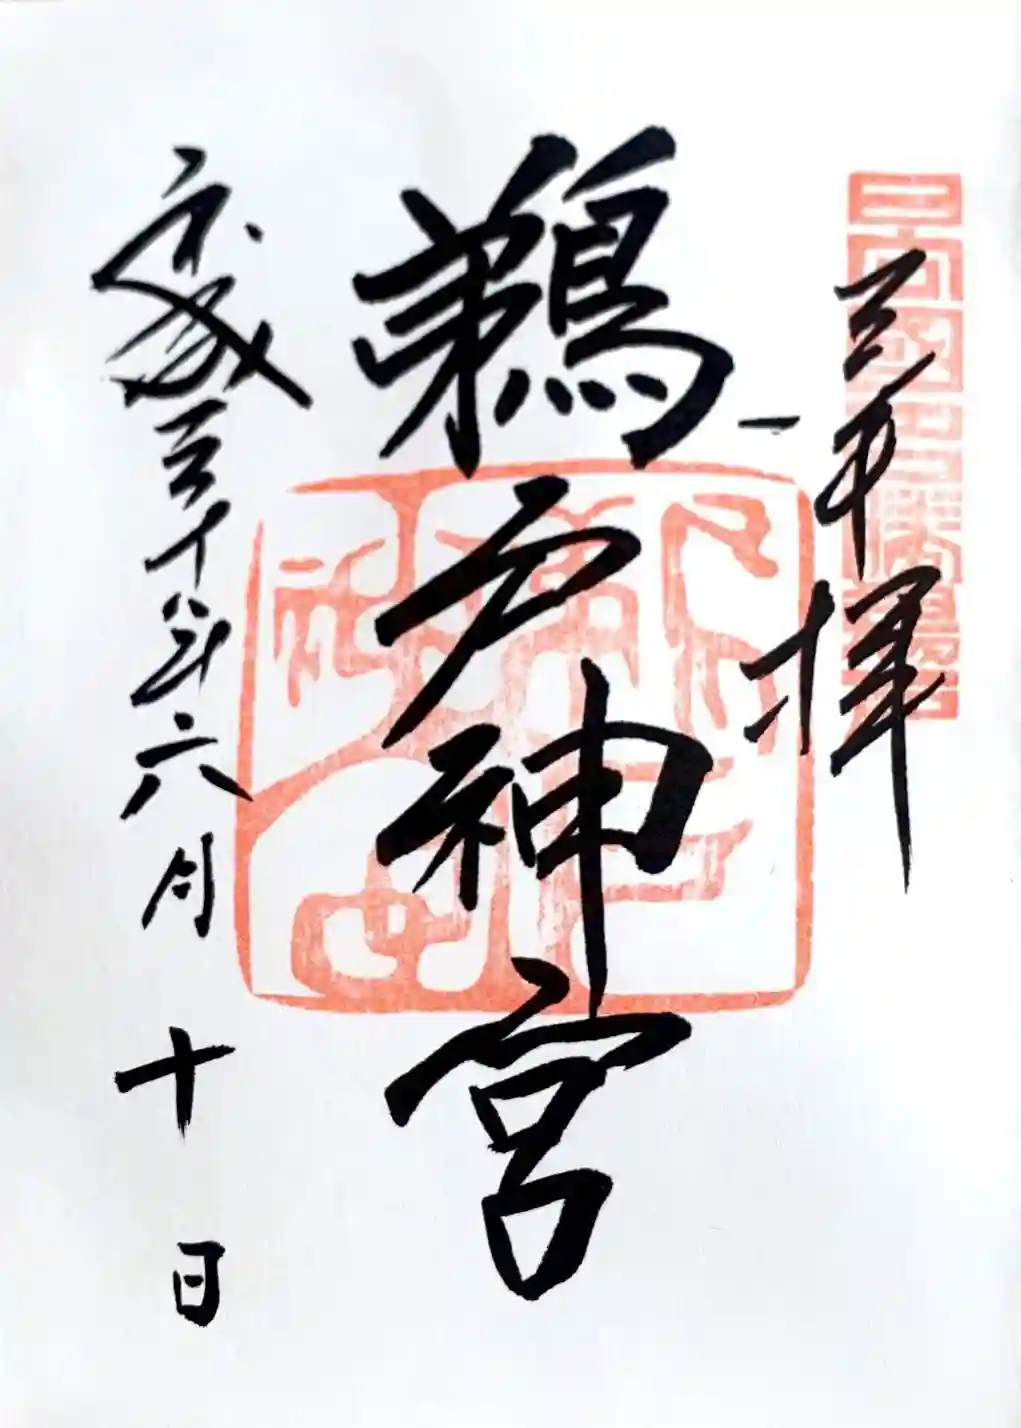 奉拝
鵜戸神宮
平成三十年六月十日